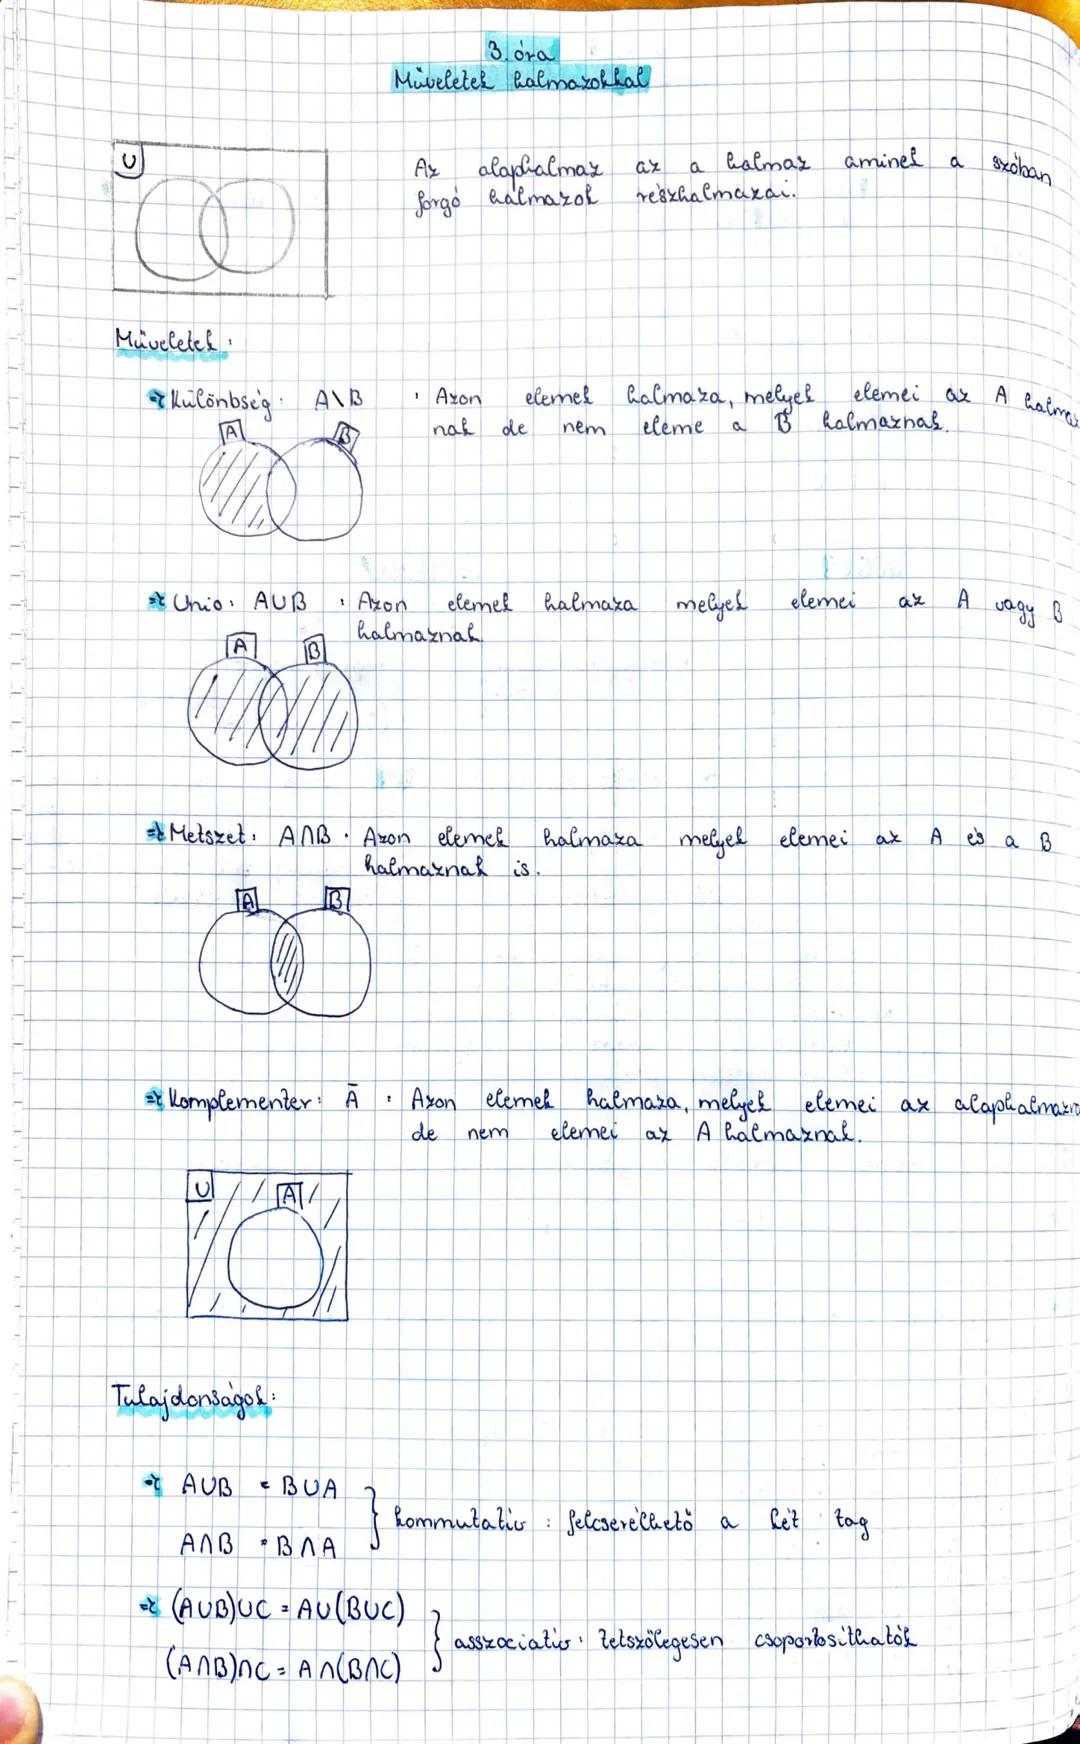 3. óra
Műveletek halmazokkal
U
Az alaphalmaz az a halmaz aminek a szóban
forgó halmazok részhalmazai.
Műveletek:
Különbség: A\B : Azon elemek halmaza, melyek elemei az A halmaz
nak de nem eleme a B halmaznak.
A B
Unio: A∪B : Azon elemek halmaza melyek elemei az A vagy B
halmaznak
A B
Metszet: A∩B : Azon elemek halmaza melyek elemei az A és a B
halmaznak is.
A B
Komplementer: Ā : Azon elemek halmaza, melyek elemei az
de nem elemei az A halmaznak.
U A
Tulajdonságok:
A∪B = B∪A
kommutatív : felcserélhető a két tag
A∩B = B∩A
(A∪B)∪C = A∪(B∪C)
asszociatív : tetszőlegesen csoportosíthatók
(A∩B)∩C = A∩(B∩C)